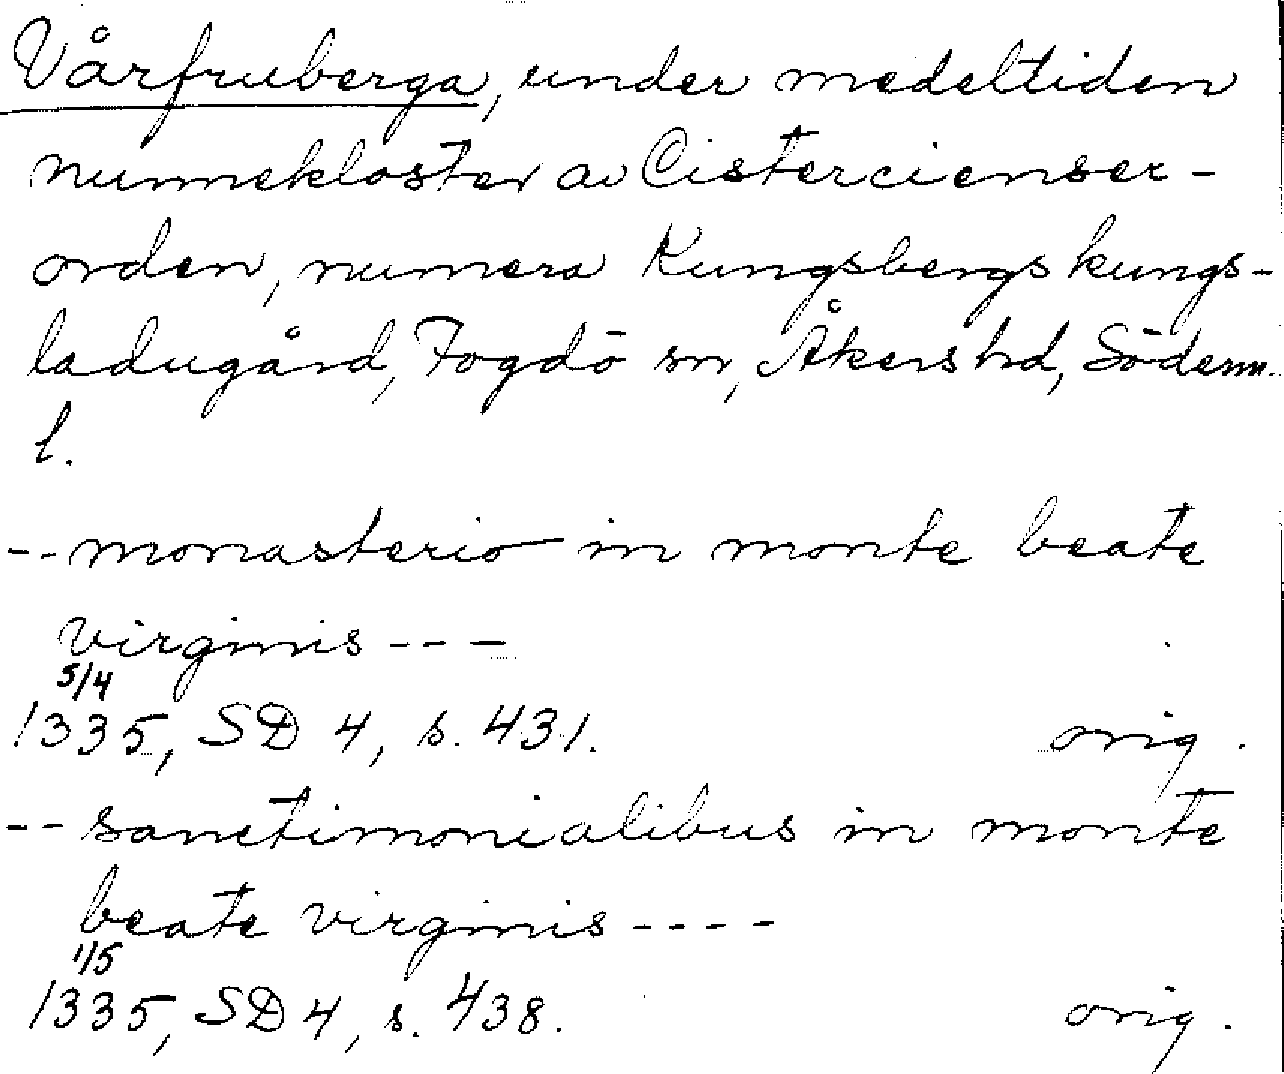 Vårfruberga, under medeltiden
nunnekloster av Cistercienser-
orden, numera Kungsbergs kungs-
ladugård, Fogdö sn, Åkers hd, Söderm.
l.
-- monasterio in monte beate
virginis ---
5/4
1335, SD 4, s. 431. orig.
-- sanctimonialibus in monte
beate virginis ----
1/5
1335, SD 4, s. 438. orig.